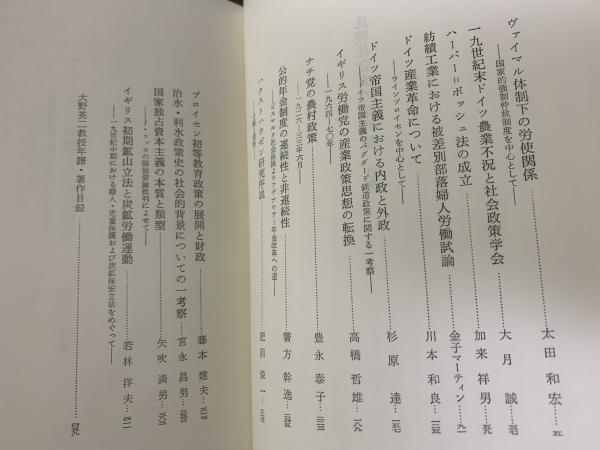 ヴァイマル体制下の労使関係……太田和宏…
――国家的強制仲裁制度を中心として――
一九世紀末ドイツ農業不況と社会政策学会……大月誠…
ハーバー＝ボッシュ法の成立……加来祥男…
紡績工業における被差別部落婦人労働試論……金子マーティン…九一
ドイツ産業革命について……川本和良…
――ラインプロイセンを中心として――
ドイツ帝国主義における内政と外政……杉原達…
――ドイツ帝国主義のバグダード鉄道政策に関する一考察――
イギリス労働党の産業政策思想の転換……高橋哲雄…
――一九六四―七〇年――
ナチ党の農村政策……豊永泰子…
――一九二六―三三年六月――
公的年金制度の連続性と非連続性……箸方幹逸…
――ビスマルク社会保険よりアデナウアー年金改革への道――
ハクストハウゼン研究序説……肥前栄一…
プロイセン初等教育政策の展開と財政……藤本建夫…
治水・利水政策史の社会的背景についての一考察……宮永昌男…
国家独占資本主義の本質と類型……矢吹満男…
――J・コッカの国独資論批判によせて――
イギリス初期鉱山立法と炭鉱労働運動……若林洋夫…
――一九世紀中期における婦人・児童保護および炭鉱保安立法をめぐって――
大野英二教授年譜・著作目録……